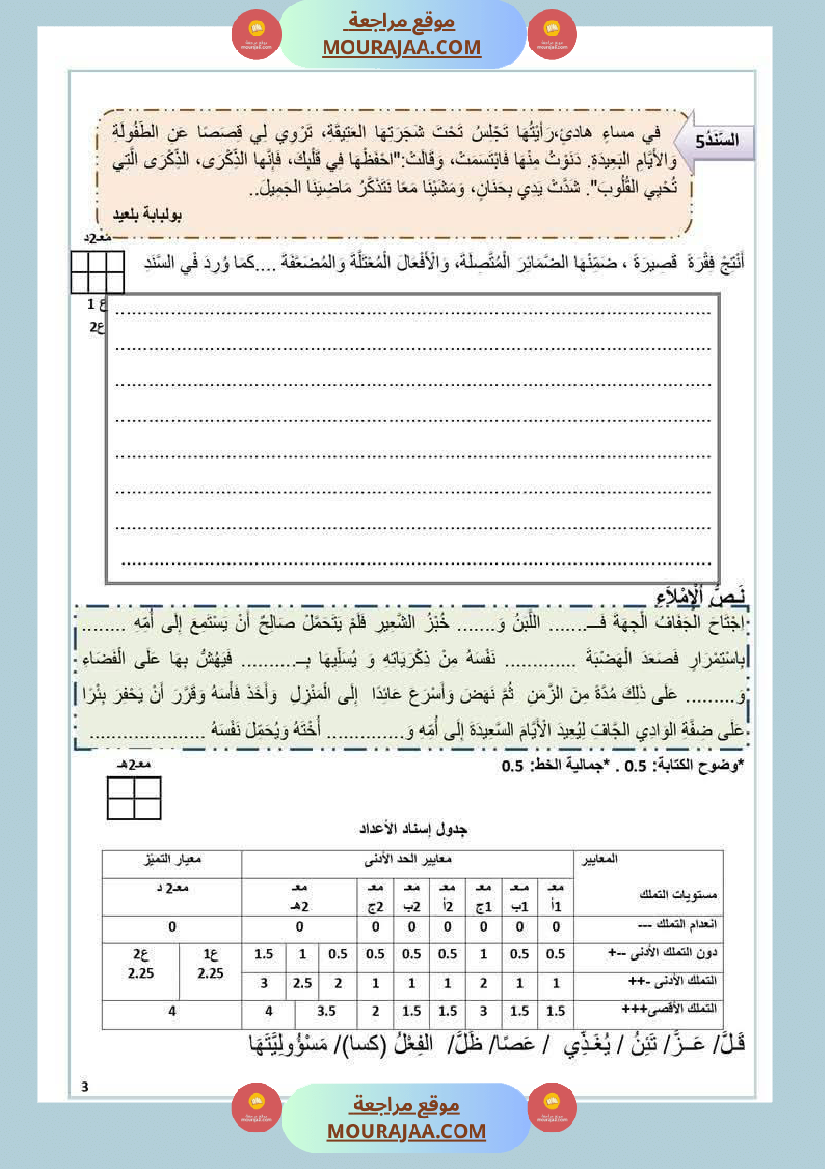 موقع مراجعة
MOURAJAA.COM
السَّنَدُ5
في مساءٍ هادئٍ،رَأَيْتُهَا تَجْلِسُ تَحْتَ شَجَرَتِها العَتِيقَةِ، تَرْوِي لي قِصَصًا عَنِ الطُّفُولَةِ
وَالأَيَّامِ البَعِيدَةِ. دَنَوْتُ مِنْهَا فَابْتَسَمَتْ، وَقَالَتْ:"احْفَظْهَا فِي قَلْبِكَ، فَإِنَّها الذِّكْرَى، الذِّكْرَى الَّتِي
تُحْيي القُلُوبَ". شَدَّتْ يَدِي بِحَنَانٍ، وَمَشَيْنَا مَعًا نَتَذَكَّرُ مَاضِيَنَا الجَمِيلَ..
بولبابة بلعيد
معـ2د
أُنْتِجُ فِقْرَةً قَصِيرَةً ، ضَمِّنْهَا الضَّمَائِرَ الْمُتَّصِلَةَ، وَالْأَفْعَالَ الْمُعْتَلَّةَ وَالمُضَعَّفَةَ ....كَمَا وُرِدَ فِي السَّنَدِ
ع 1
ع2
نَـصُّ الْإِمْلَاءِ
اِجْتَاحَ الْجَفَافُ الْجِهَةَ فَـ....... اللَّبَنُ وَ....... خُبْزُ الشَّعِيرِ فَلَمْ يَتَحَمَّلْ صَالِحٌ أَنْ يَسْتَمِعَ إِلَى أُمِّهِ ........
بِاسْتِمْرَارٍ فَصَعَدَ الْهَضْبَةَ ............ نَفْسَهُ مِنْ ذِكْرَيَاتِهِ وَ يُسَلِّيهَا بِـ.......... فَيَهُشُّ بِهَا عَلَى الْفَضَاءِ
وَ......... عَلَى ذَلِكَ مُدَّةً مِنَ الزَّمَنِ ثُمَّ نَهِضَ وَأَسْرَعَ عَائِدًا إِلَى الْمَنْزِلِ وَأَخَذَ فَأْسَهُ وَقَرَّرَ أَنْ يَحْفِرَ بِئْرًا
عَلَى ضِفَّةِ الْوَادِي الْجَافِّ لِيُعِيدَ الْأَيَّامَ السَّعِيدَةَ إِلَى أُمِّهِ وَ.............. أُخْتَهُ وَيُحَمِّلَ نَفْسَهُ .....................
*وضوح الكتابة: 0.5 . *جمالية الخط: 0.5
معـ2هـ
جدول إسناد الأعداد
المعايير معايير الحد الأدنى معيار التميّز
مستويات التملك معـ 1أ معـ 1ب معـ 1ج معـ 2أ معـ 2ب معـ 2ج معـ 2هـ معـ2 د
انعدام التملك --- 0 0 0 0 0 0 0 0
دون التملك الأدنى --+ 0.5 0.5 1 0.5 0.5 0.5 0.5 1 1.5 ع1 2.25 ع2 2.25
التملك الأدنى -++ 1 1 2 1 1 1 2 2.5 3
التملك الأقصى+++ 1.5 1.5 3 1.5 1.5 2 3.5 4 4
قَـلَّ/ عَــزَّ/ تَئِنُّ / يُغَـذِّي / عَصًا/ ظَلَّ/ الفِعْلُ (كسا)/ مَسْؤُولِيَّتَهَا
3
موقع مراجعة
MOURAJAA.COM